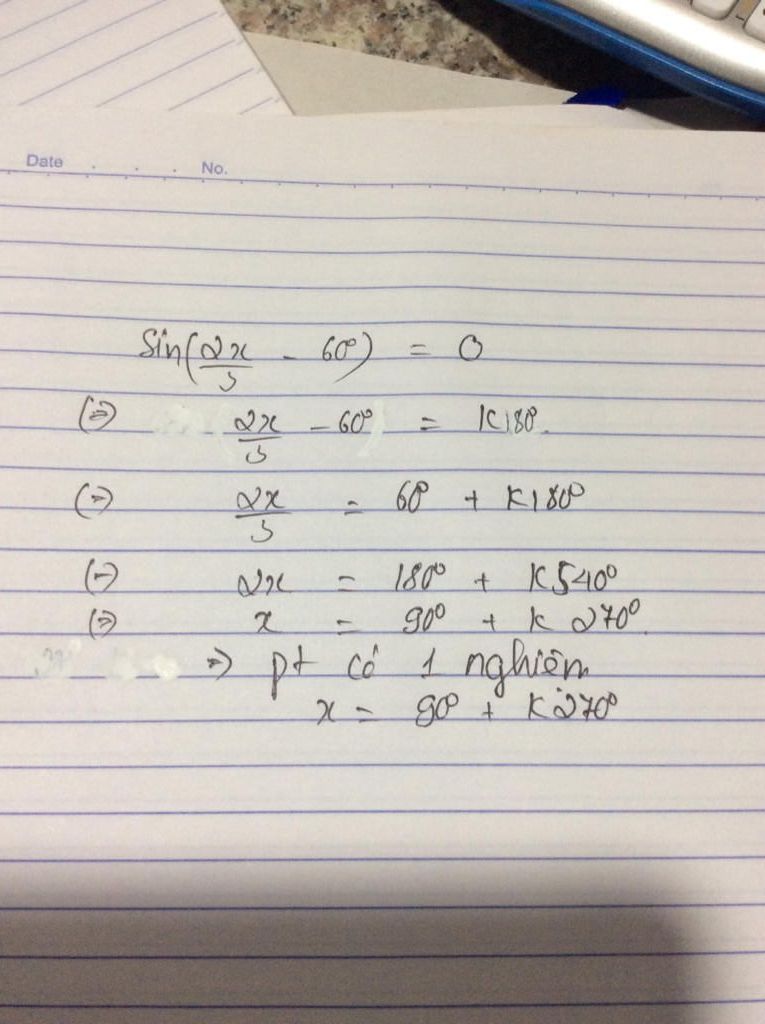 Date . . . No.
Sin(2x/3 - 60°) = 0
(=) 2x/3 - 60° = K180.
(=) 2x/3 = 60° + K180°
(=) 2x = 180° + K540°
(=) x = 90° + K 270°.
=> pt có 1 nghiệm
x = 90° + K270°